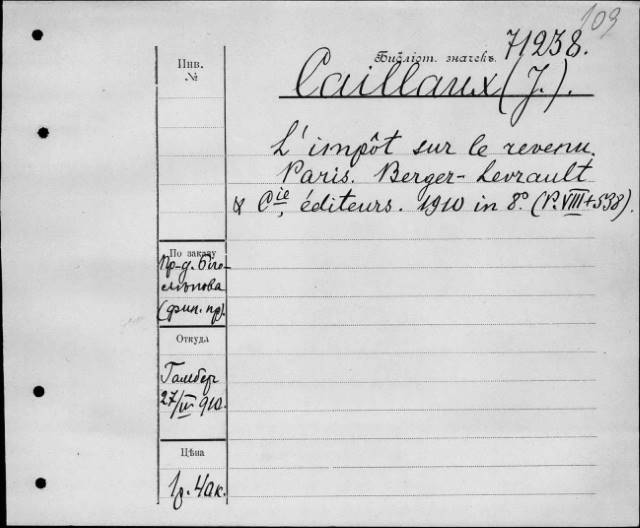 109
71238.
Библіот. значекъ.
Инв.
№
Caillaux (J.).
L'impôt sur le revenu.
Paris. Berger-Levrault
& Cie, éditeurs. 1910 in 8º. (P. VIII + 538).
По заказу
(фин. пр).
Откуда
Гамбер
27/III 910.
Цѣна
1 р. 4 а к.